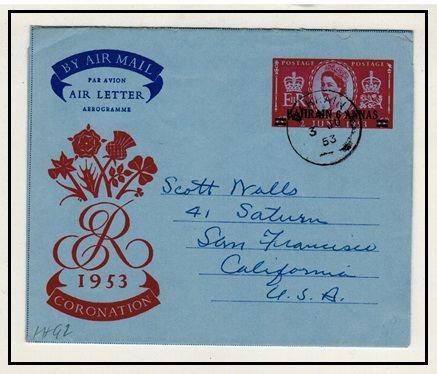 BY AIR MAIL
PAR AVION
AIR LETTER
AEROGRAMME
POSTAGE POSTAGE
E R
BAHRAIN 6 ANNAS
2 JUNE 1953
BAHRAIN
3 JU
53
Scott Walls
41 Saturn
San Francisco
California
U.S.A.
ER
1953
CORONATION
H&G2